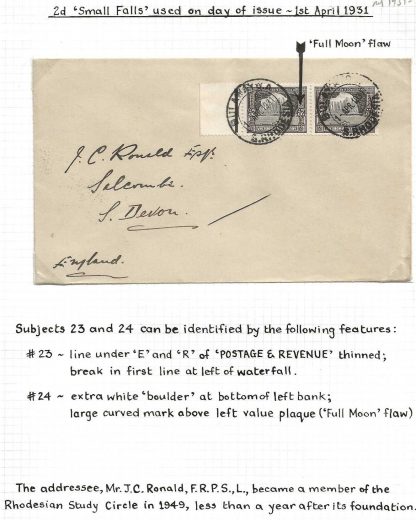 2d 'Small Falls' used on day of issue ~ 1st April 1931
'Full Moon' flaw
J. C. Ronald Esq.
Salcombe.
S. Devon.
England.
Subjects 23 and 24 can be identified by the following features:
#23 ~ line under 'E' and 'R' of 'POSTAGE & REVENUE' thinned;
break in first line at left of waterfall.
#24 ~ extra white 'boulder' at bottom of left bank;
large curved mark above left value plaque ('Full Moon' flaw)
The addressee, Mr. J.C. Ronald, F.R.P.S., L., became a member of the
Rhodesian Study Circle in 1949, less than a year after its foundation.